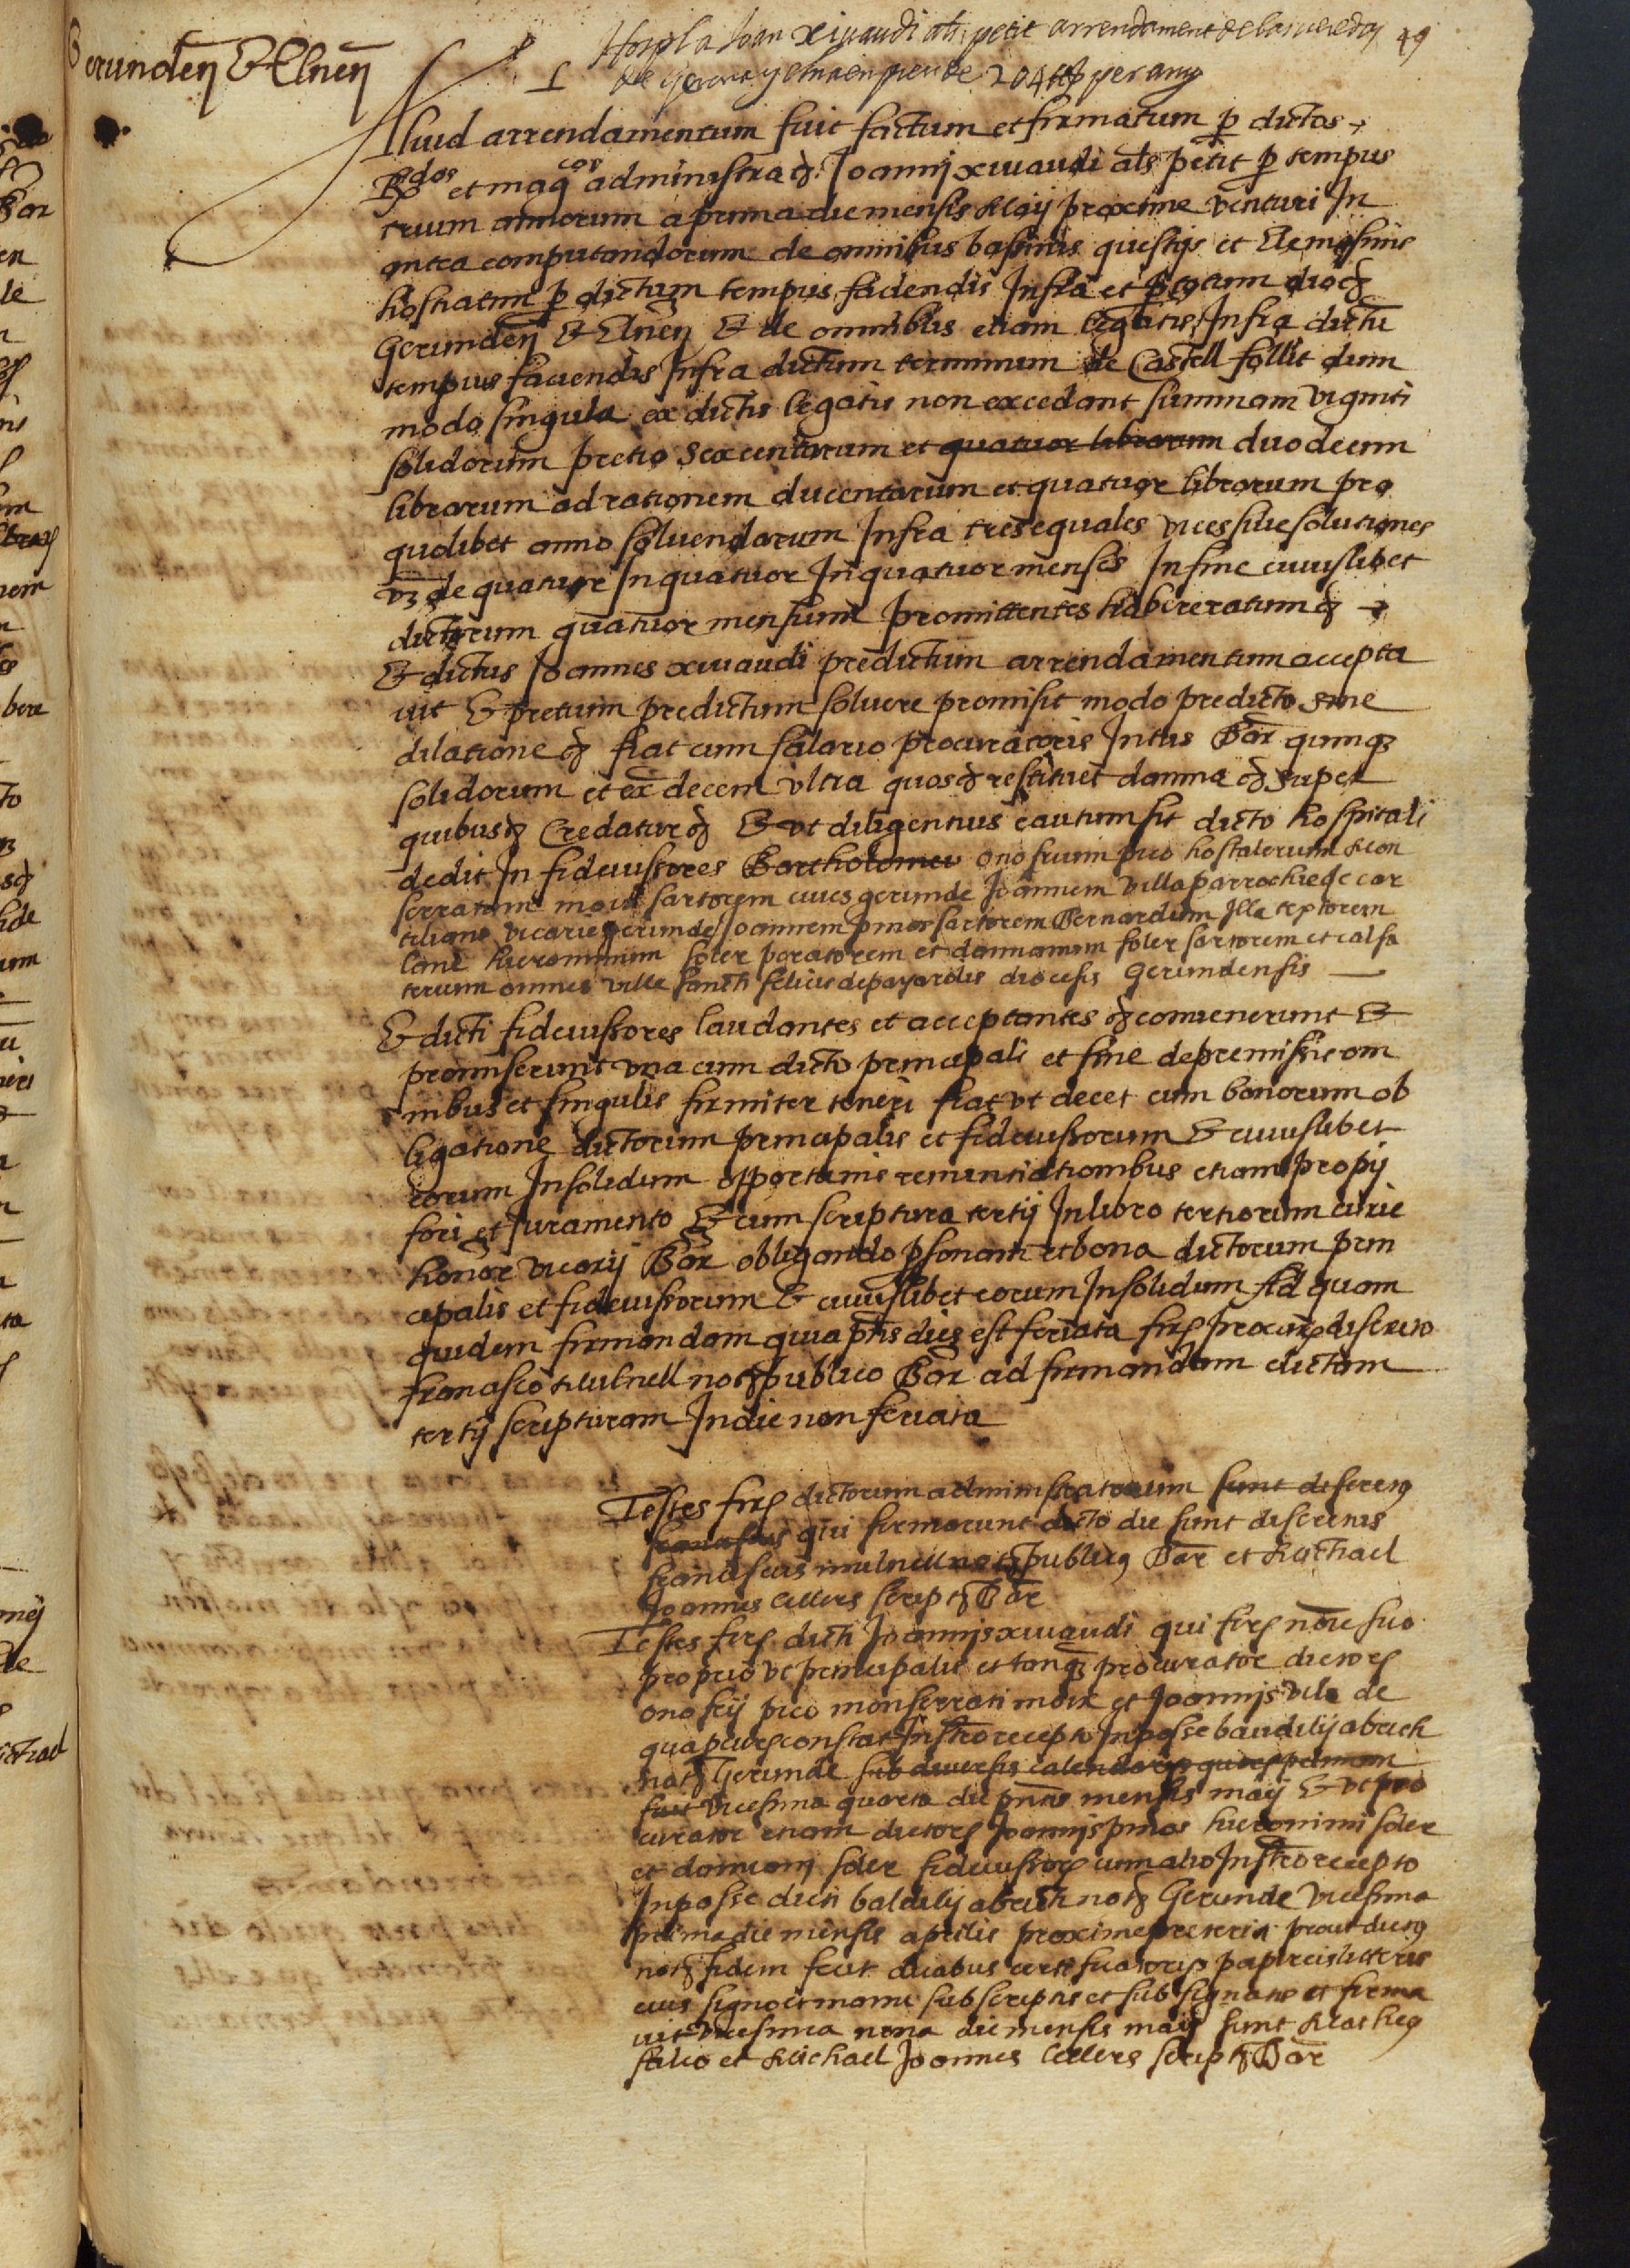 Gerunden̄ & Elnen̄
Hospl a Joan xiuaudi als petit arrendament de las veredas 49
de gerona y elna en preu de 204 ll per any
Aliud arrendamentum fuit factum et firmatum p dictos
Rdos et magcos administra₫ Joannj xiuaudi als petit p tempus
trium annorum a prima die mensis Maij proxime venturi In
antea computandorum de omnibus bassinis questijs et Elemosinis
hostiatim p dictum tempus faciendis Infra et p totam dioc₫
Gerunden̄ & Elnen̄ & de omnibus etiam legatis Infra dictū
tempus faciendis Infra dictum terminum de Castell follit dum
modo singula ex dictis legatis non excedant summam viginti
solidorum pretio sexcentarum et quatuor librarum duodecim
librarum ad rationem ducentarum et quatuor librarum pro
quolibet anno soluendarum Infra tres equales vices siue solutiones
vz de quatuor In quatuor In quatuor menses In fine cuiuslibet
dictorum quatuor mensium promittentes habere ratum ₫
& dictus Joannes xiuaudi predictum arrendamentum accepta
uit & pretium predictum soluere promisit modo predicto sine
dilatione ₫ fiat cum salario procuratoris Intus Bar̄ quinqz
solidorum et ex̄ decem vltra quos₫ restituet damna ₫ super
quibus₫ Credatur ₫ & vt diligentius cautum sit dicto hospitali
dedit In fideiussores Bartholomeu onofrium pico hostalerum Mon
serratum moix sartorem ciues gerunde Joannem Villa parrochie de car
tiliano vicarie gerunde Joannem pmos sartorem Bernardum Illa textorem
lane hieronimum soler paratorem et damianum soler sartorem et calsa
terium omnes ville sancti felicis de payarolis diocesis Gerundensis
& dicti fideiussores laudantes et acceptantes ₫ conuenerunt &
promiserunt vna cum dicto principali et sine de premissis om
nibus et singulis firmiter teneri fiat vt decet cum bonorum ob
ligatione dictorum principalis et fideiussorum & cuiuslibet
eorum Insolidum opportunis renuntiationibus etiam proprij
fori et Juramento & cum scriptura tertij In libro tertiorum curie
honor̄ vicarij Bar̄ obligando psonam et bona dictorum prin
cipalis et fideiussorum & cuiuslibet eorum Insolidum Ad quam
quidem firmandam quia pn̄s dies est feriata fir procur discreto
francisco Mulnell not₫ publico Bar̄ ad firmandum dictam
tertij scripturam In die non feriata
Testes fir dictorum administratorum sunt discretus
franciscus qui firmarunt dicto die sunt discretus
franciscus mulnell not₫ publicus Bar̄ et Michael
Joannes Cellers script₫ Bar̄
Testes fir dicti Joannis xiuaudi qui fir noīe suo
proprio vt principalis et tanqz procurator dictor
onofrij pico monserrati moix et Joannis vila de
qua procur constat Instro recepto In posse baudilij abrich
not₫ Gerunde sub diuersis calendarijs quor primum
fuit vicesima quarta die pn̄tis mensis maij & vt pro
curator etiam dictor Joannis pmos hieronimi soler
et damiani soler fideiussor cum alio Instro recepto
In posse dicti baldilij abrich not₫ Gerunde vicesima
prima die mensis aprilis proxime preteriti prout dictus
not₫ fidem fecit duabus certificatorijs papireis litteris
eius signo et manu subscriptis et subsignatis et firma
uit vicesima nona die mensis maij sunt Matheus
falco et Michael Joannes Cellers script₫ Bar̄